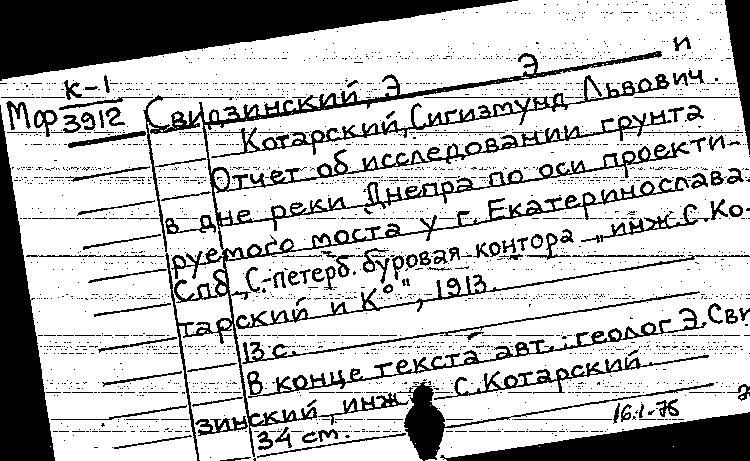 Мф К-1
3912
Свидзинский, Э Э и
Котарский, Сигизмунд Львович.
Отчет об исследовании грунта
в дне реки Днепра по оси проекти-
руемого моста у г. Екатеринослава.
Спб, „С.-петерб. буровая контора „инж. С. Ко-
тарский и К°", 1913.
13 с.
В конце текста авт.: геолог Э. Сви
зинский, инж. С. Котарский.
34 cm.
16.1-75